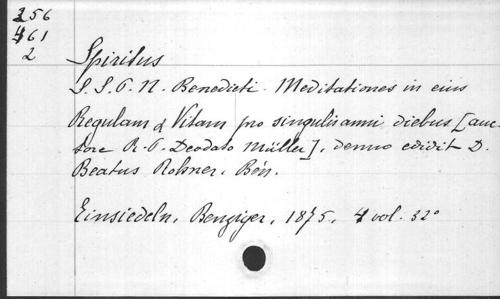 256
461
2
Spiritus
S. S. P. N. Benedicti. Meditationes in eius
Regulam & Vitam pro singulis anni diebus [auc-
tore R. P. Deodato Müller], denuo edidit D.
Beatus Rohner, Bén.
Einsiedeln, Benziger, 1875, 4 vol. 32°